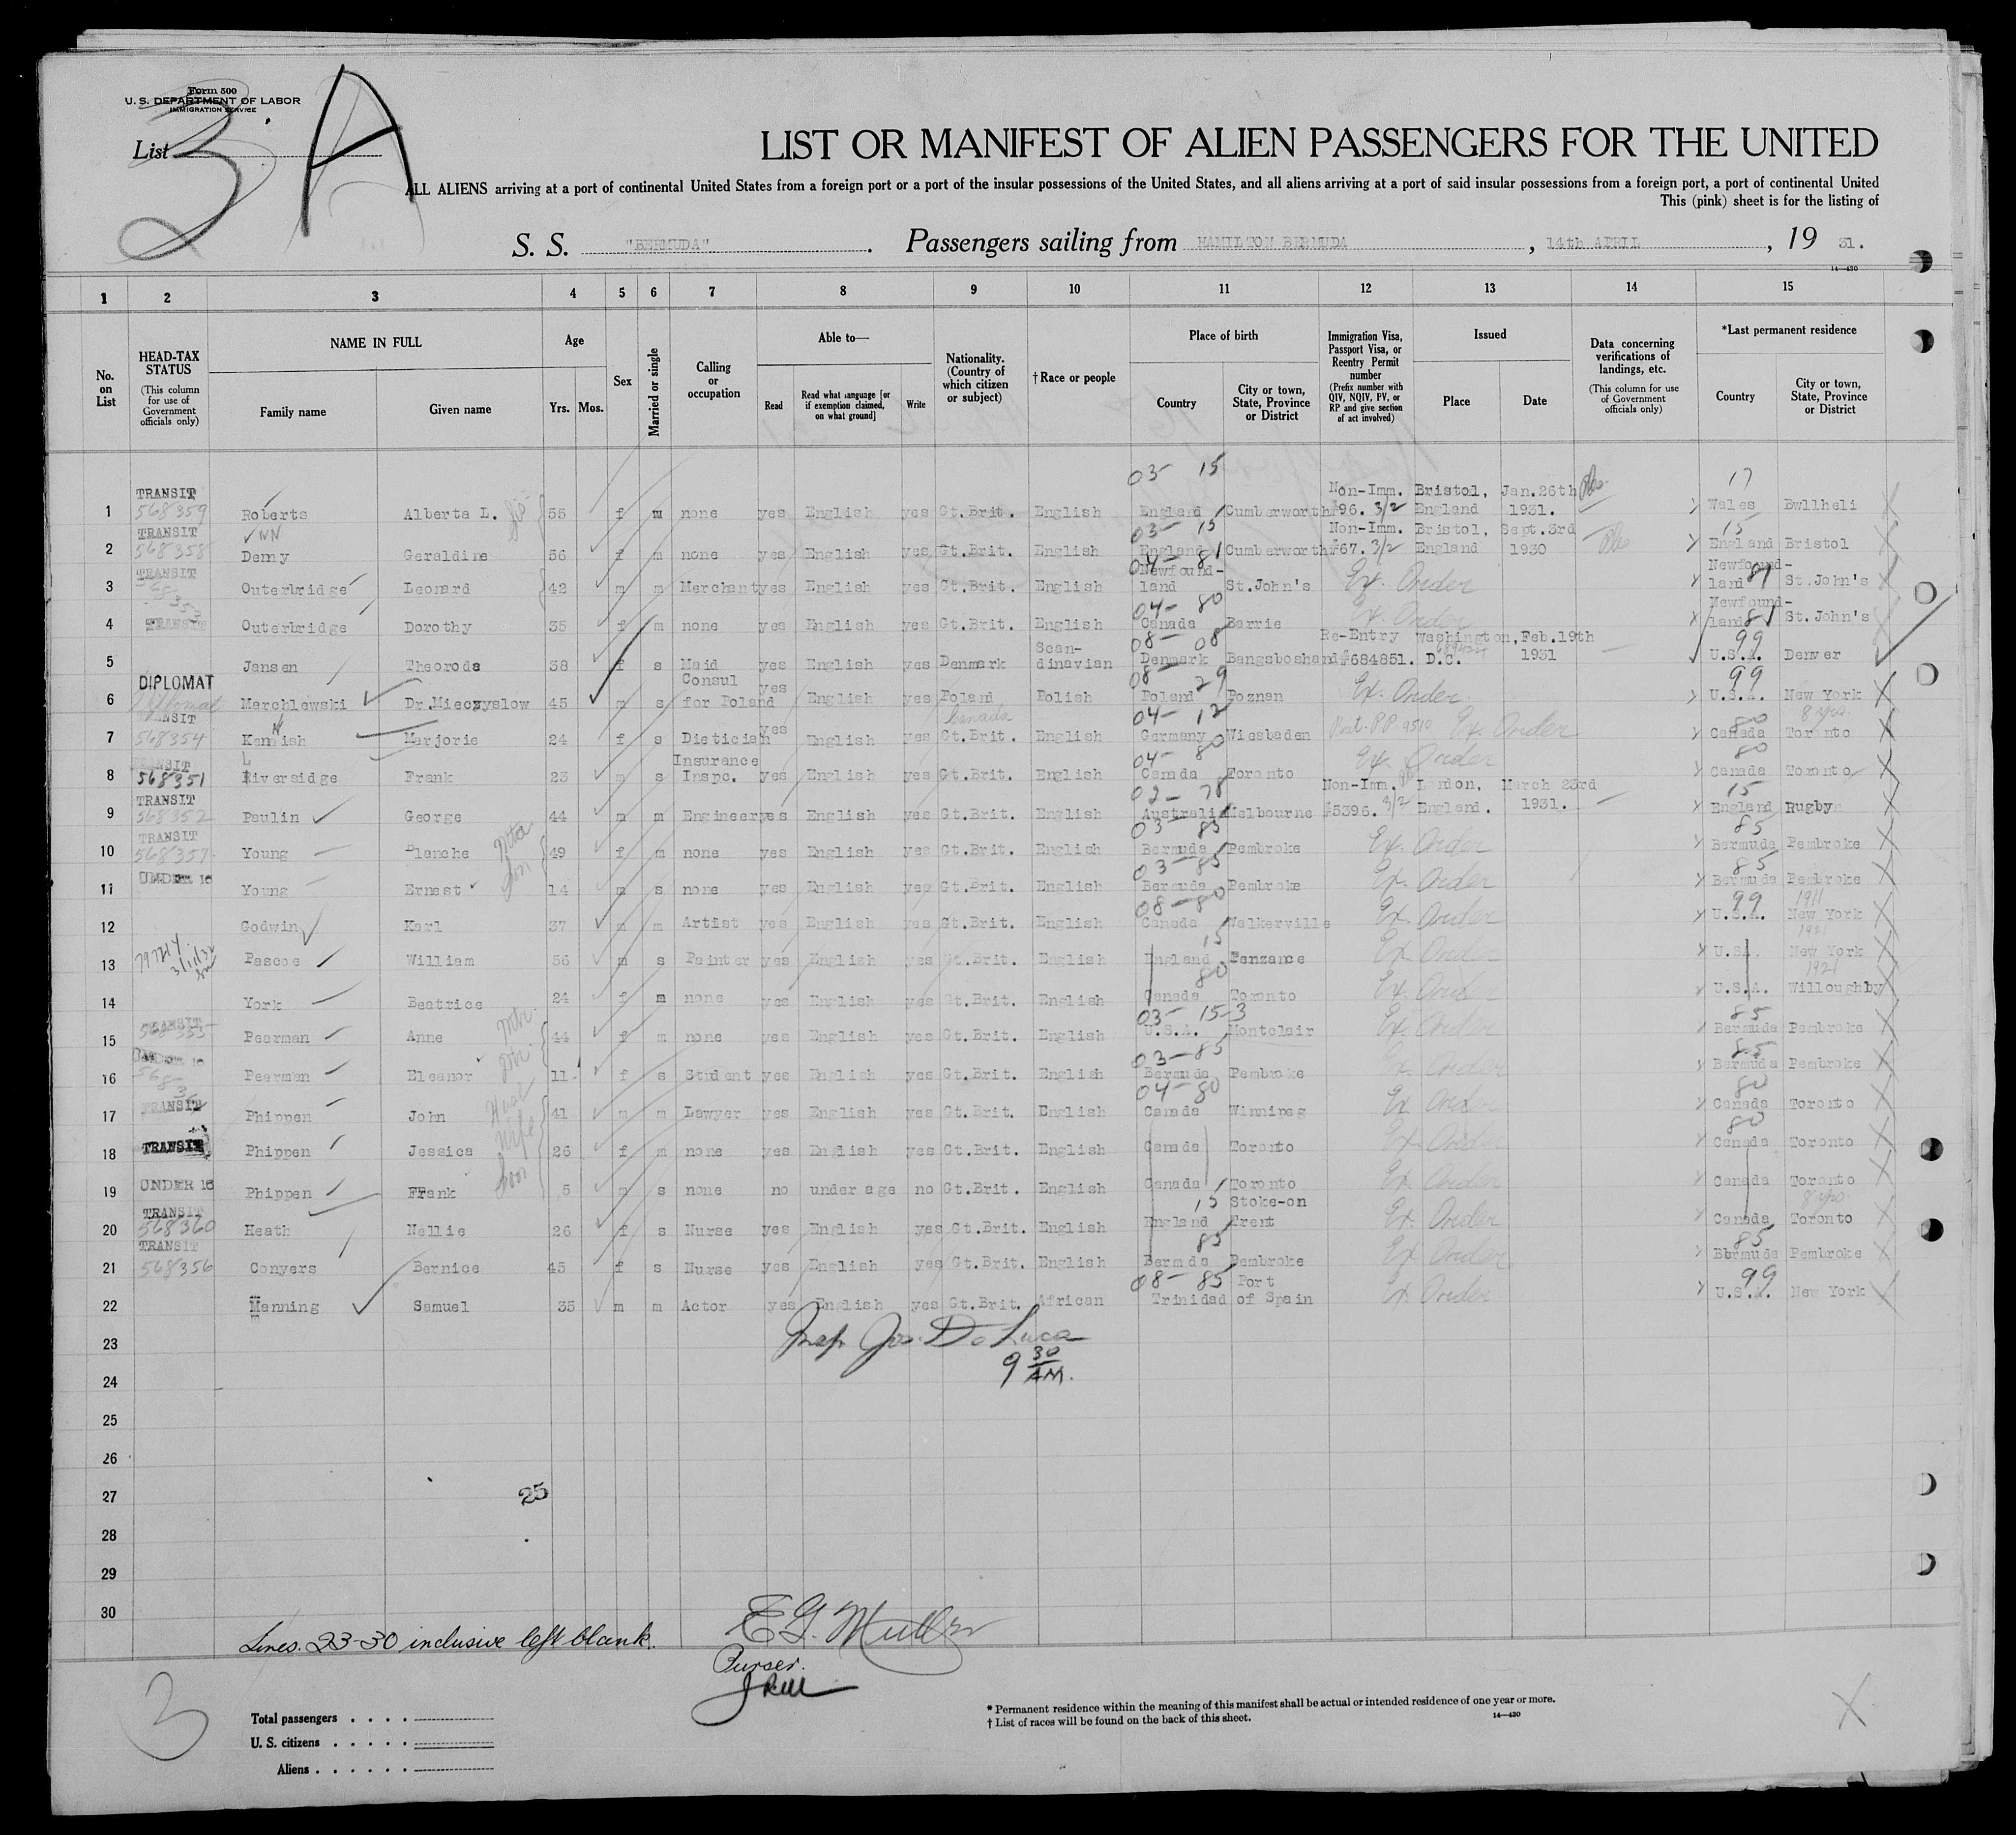 Form 500
U. S. DEPARTMENT OF LABOR
IMMIGRATION SERVICE
List 3 A
LIST OR MANIFEST OF ALIEN PASSENGERS FOR THE UNITED
ALL ALIENS arriving at a port of continental United States from a foreign port or a port of the insular possessions of the United States, and all aliens arriving at a port of said insular possessions from a foreign port, a port of continental United
This (pink) sheet is for the listing of
S. S. "BERMUDA". Passengers sailing from HAMILTON BERMUDA, 14th APRIL, 19 31.
14—430
1 2 3 4 5 6 7 8 9 10 11 12 13 14 15
No. on List
HEAD-TAX STATUS (This column for use of Government officials only)
NAME IN FULL
Family name Given name
Age
Yrs. Mos.
Sex
Married or single
Calling or occupation
Able to—
Read Read what language [or if exemption claimed, on what ground] Write
Nationality. (Country of which citizen or subject)
†Race or people
Place of birth
Country City or town, State, Province or District
Immigration Visa, Passport Visa, or Reentry Permit number (Prefix number with QIV, NQIV, PV, or RP and give section of act involved)
Issued
Place Date
Data concerning verifications of landings, etc. (This column for use of Government officials only)
*Last permanent residence
Country City or town, State, Province or District
03- 15 17
1 TRANSIT 568359 Roberts Alberta L. 55 f m none yes English yes Gt.Brit. English England Cumberworth Non-Imm. #96. 3/2 Bristol, England Jan.26th 1931. Wales Bwllheli
03- 15 15
2 TRANSIT 568358 Demy Geraldine 56 f m none yes English yes Gt.Brit. English England Cumberworth Non-Imm. #67. 3/2 Bristol, England Sept.3rd 1930 England Bristol
04- 81
3 TRANSIT Outerbridge Leonard 42 m m Merchant yes English yes Gt.Brit. English Newfound-land St.John's Ex. Order Newfound-land 81 St.John's
04- 80
4 TRANSIT Outerbridge Dorothy 35 f m none yes English yes Gt.Brit. English Canada Barrie Ex. Order Newfound-land 81 St.John's
08- 08 99
5 Jansen Theoroda 38 f s Maid yes English yes Denmark Scan-dinavian Denmark Bangsboshand Re-Entry #684851. Washington, D.C. Feb.19th 1931 U.S.A. Denver
08- 29 99
6 DIPLOMAT Diplomat Marchlewski Dr.Mieczyslow 45 m s Consul for Poland yes English yes Poland Polish Poland Poznan Ex. Order U.S.A. New York
04- 12 Canada 80 8 yrs.
7 TRANSIT 568354 Kennish Marjorie 24 f s Dietician yes English yes Gt.Brit. English Germany Wiesbaden Ex. Order Canada Toronto
04- 80 80
8 TRANSIT 568351 Riversidge Frank 23 m s Insurance Inspc. yes English yes Gt.Brit. English Canada Toronto Ex. Order Canada Toronto
02- 78 15
9 TRANSIT 568352 Paulin George 44 m m Engineer yes English yes Gt.Brit. English Australia Melbourne Non-Imm. #5396. 3/2 London, England. March 23rd 1931. England Rugbyn
03- 85 85
10 TRANSIT 568357 Young Blanche 49 f m none yes English yes Gt.Brit. English Bermuda Pembroke Ex. Order Bermuda Pembroke
03- 85 85
11 UNDER 16 Young Ernest Son 14 m s none yes English yes Gt.Brit. English Bermuda Pembroke Ex. Order Bermuda Pembroke
08-80 99 1911
12 Godwin Karl 37 m m Artist yes English yes Gt.Brit. English Canada Walkerville Ex. Order U.S.A. New York
15 1921
13 Pascoe William 56 m s Painter yes English yes Gt.Brit. English England Penzance Ex. Order U.S.A. New York
80 1921
14 York Beatrice 24 f m none yes English yes Gt.Brit. English Canada Toronto Ex. Order U.S.A. Willoughby
03- 15-3 85
15 TRANSIT Pearman Anne 44 f m none yes English yes Gt.Brit. English U.S.A. Montclair Ex. Order Bermuda Pembroke
03-85 85
16 UNDER 16 Pearman Eleanor 11 f s Student yes English yes Gt.Brit. English Bermuda Pembroke Ex. Order Bermuda Pembroke
04- 80 80
17 TRANSIT Phippen John 41 m m Lawyer yes English yes Gt.Brit. English Canada Winnipeg Ex. Order Canada Toronto
80
18 TRANSIT Phippen Jessica Wife 26 f m none yes English yes Gt.Brit. English Canada Toronto Ex. Order Canada Toronto
19 UNDER 16 Phippen Frank Son 5 m s none no under age no Gt.Brit. English Canada Toronto Ex. Order Canada Toronto
15 8 yrs.
20 TRANSIT 568360 Heath Nellie 26 f s Nurse yes English yes Gt.Brit. English England Stoke-on Trent Ex. Order Canada Toronto
85 85
21 TRANSIT 568356 Conyers Bernice 45 f s Nurse yes English yes Gt.Brit. English Bermuda Pembroke Ex. Order Bermuda Pembroke
08- 85 99
22 Manning Samuel 35 m m Actor yes English yes Gt.Brit. African Trinidad Port of Spain Ex. Order U.S.A. New York
23 Insp. Jos. De Luca
9 30 AM.
24
25
26
27
25
28
29
30
Lines. 23-30 inclusive left blank.
E G. Muller
Purser.
3
Total passengers . . . .
U. S. citizens . . . . .
Aliens . . . . . .
* Permanent residence within the meaning of this manifest shall be actual or intended residence of one year or more.
† List of races will be found on the back of this sheet.
14—430
X